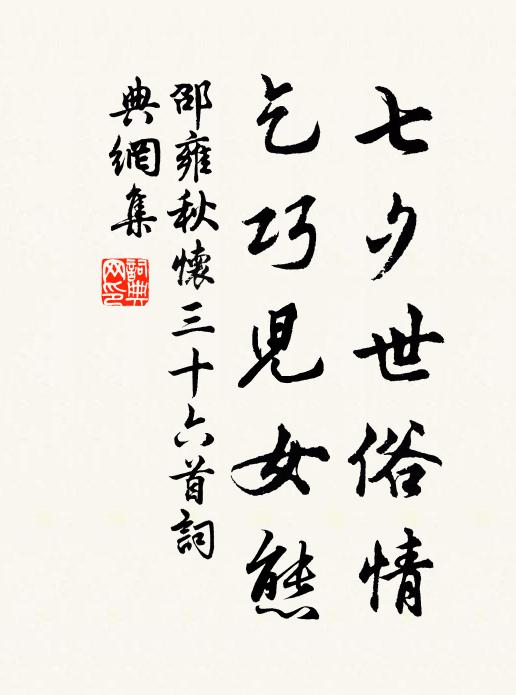 七夕世俗情
乞巧兒女態
邵雍秋懷三十六首詞
典網集
詞典
网印